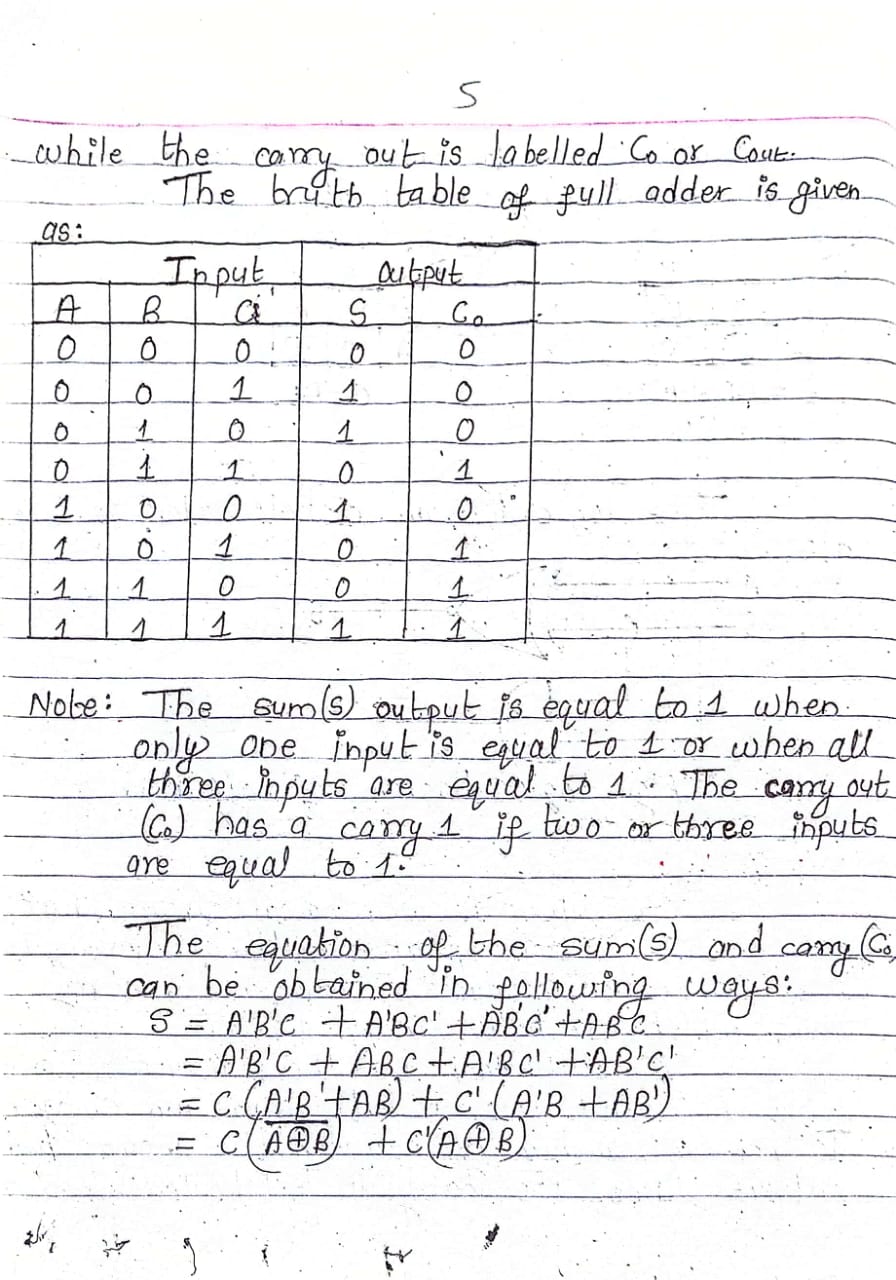 5
while the carry out is labelled Co or Cout.
The truth table of full adder is given
as:
Input Output
A B Ci S Co
0 0 0 0 0
0 0 1 1 0
0 1 0 1 0
0 1 1 0 1
1 0 0 1 0
1 0 1 0 1
1 1 0 0 1
1 1 1 1 1
Note: The sum(s) output is equal to 1 when
only one input is equal to 1 or when all
three inputs are equal to 1. The carry out
(Co) has a carry 1 if two or three inputs
are equal to 1.
The equation of the sum(s) and carry (Co)
can be obtained in following ways:
S = A'B'C + A'BC' + AB'C' + ABC
= A'B'C + ABC + A'BC' + AB'C'
= C (A'B'+AB) + C' (A'B +AB')
= C (A̅⊕̅B̅) + C'(A⊕B)